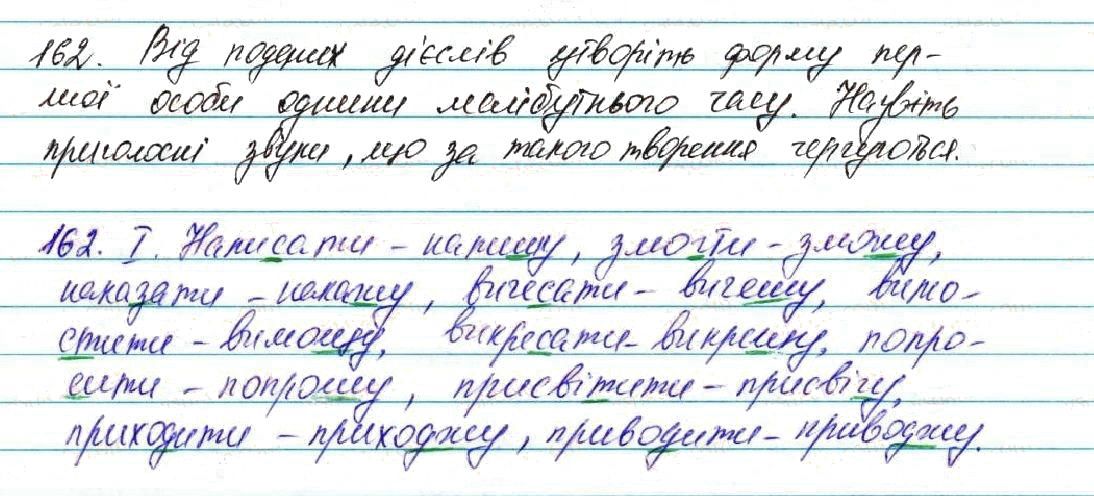 162. Від поданих дієслів утворіть форму пер-
шої особи однини майбутнього часу. Назвіть
приголосні звуки, що за такого творення чергуються.
162. I. Написати – напишу, змогти – зможу,
наказати – накажу, вичесати – вичешу, вимо-
стити – вимощу, викресати – викрешу, попро-
сити – попрошу, присвітити – присвічу,
приходити – приходжу, приводити – приводжу.